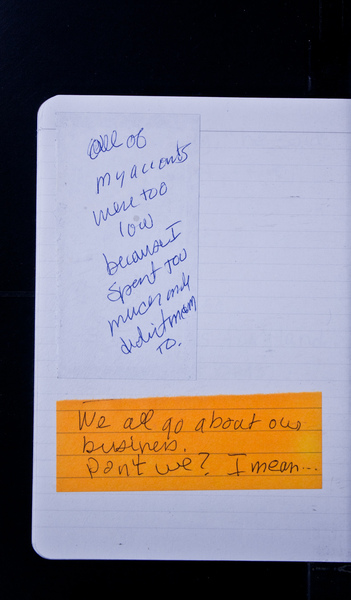 All of
my accounts
were too
low
because I
spent too
much and
didn't mean
to.
We all go about our
business.
Don't we? I mean...